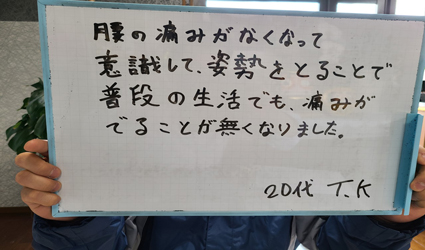 腰の痛みがなくなって
意識して、姿勢をとることで
普段の生活でも、痛みが
でることが無くなりました。
20代 T.K